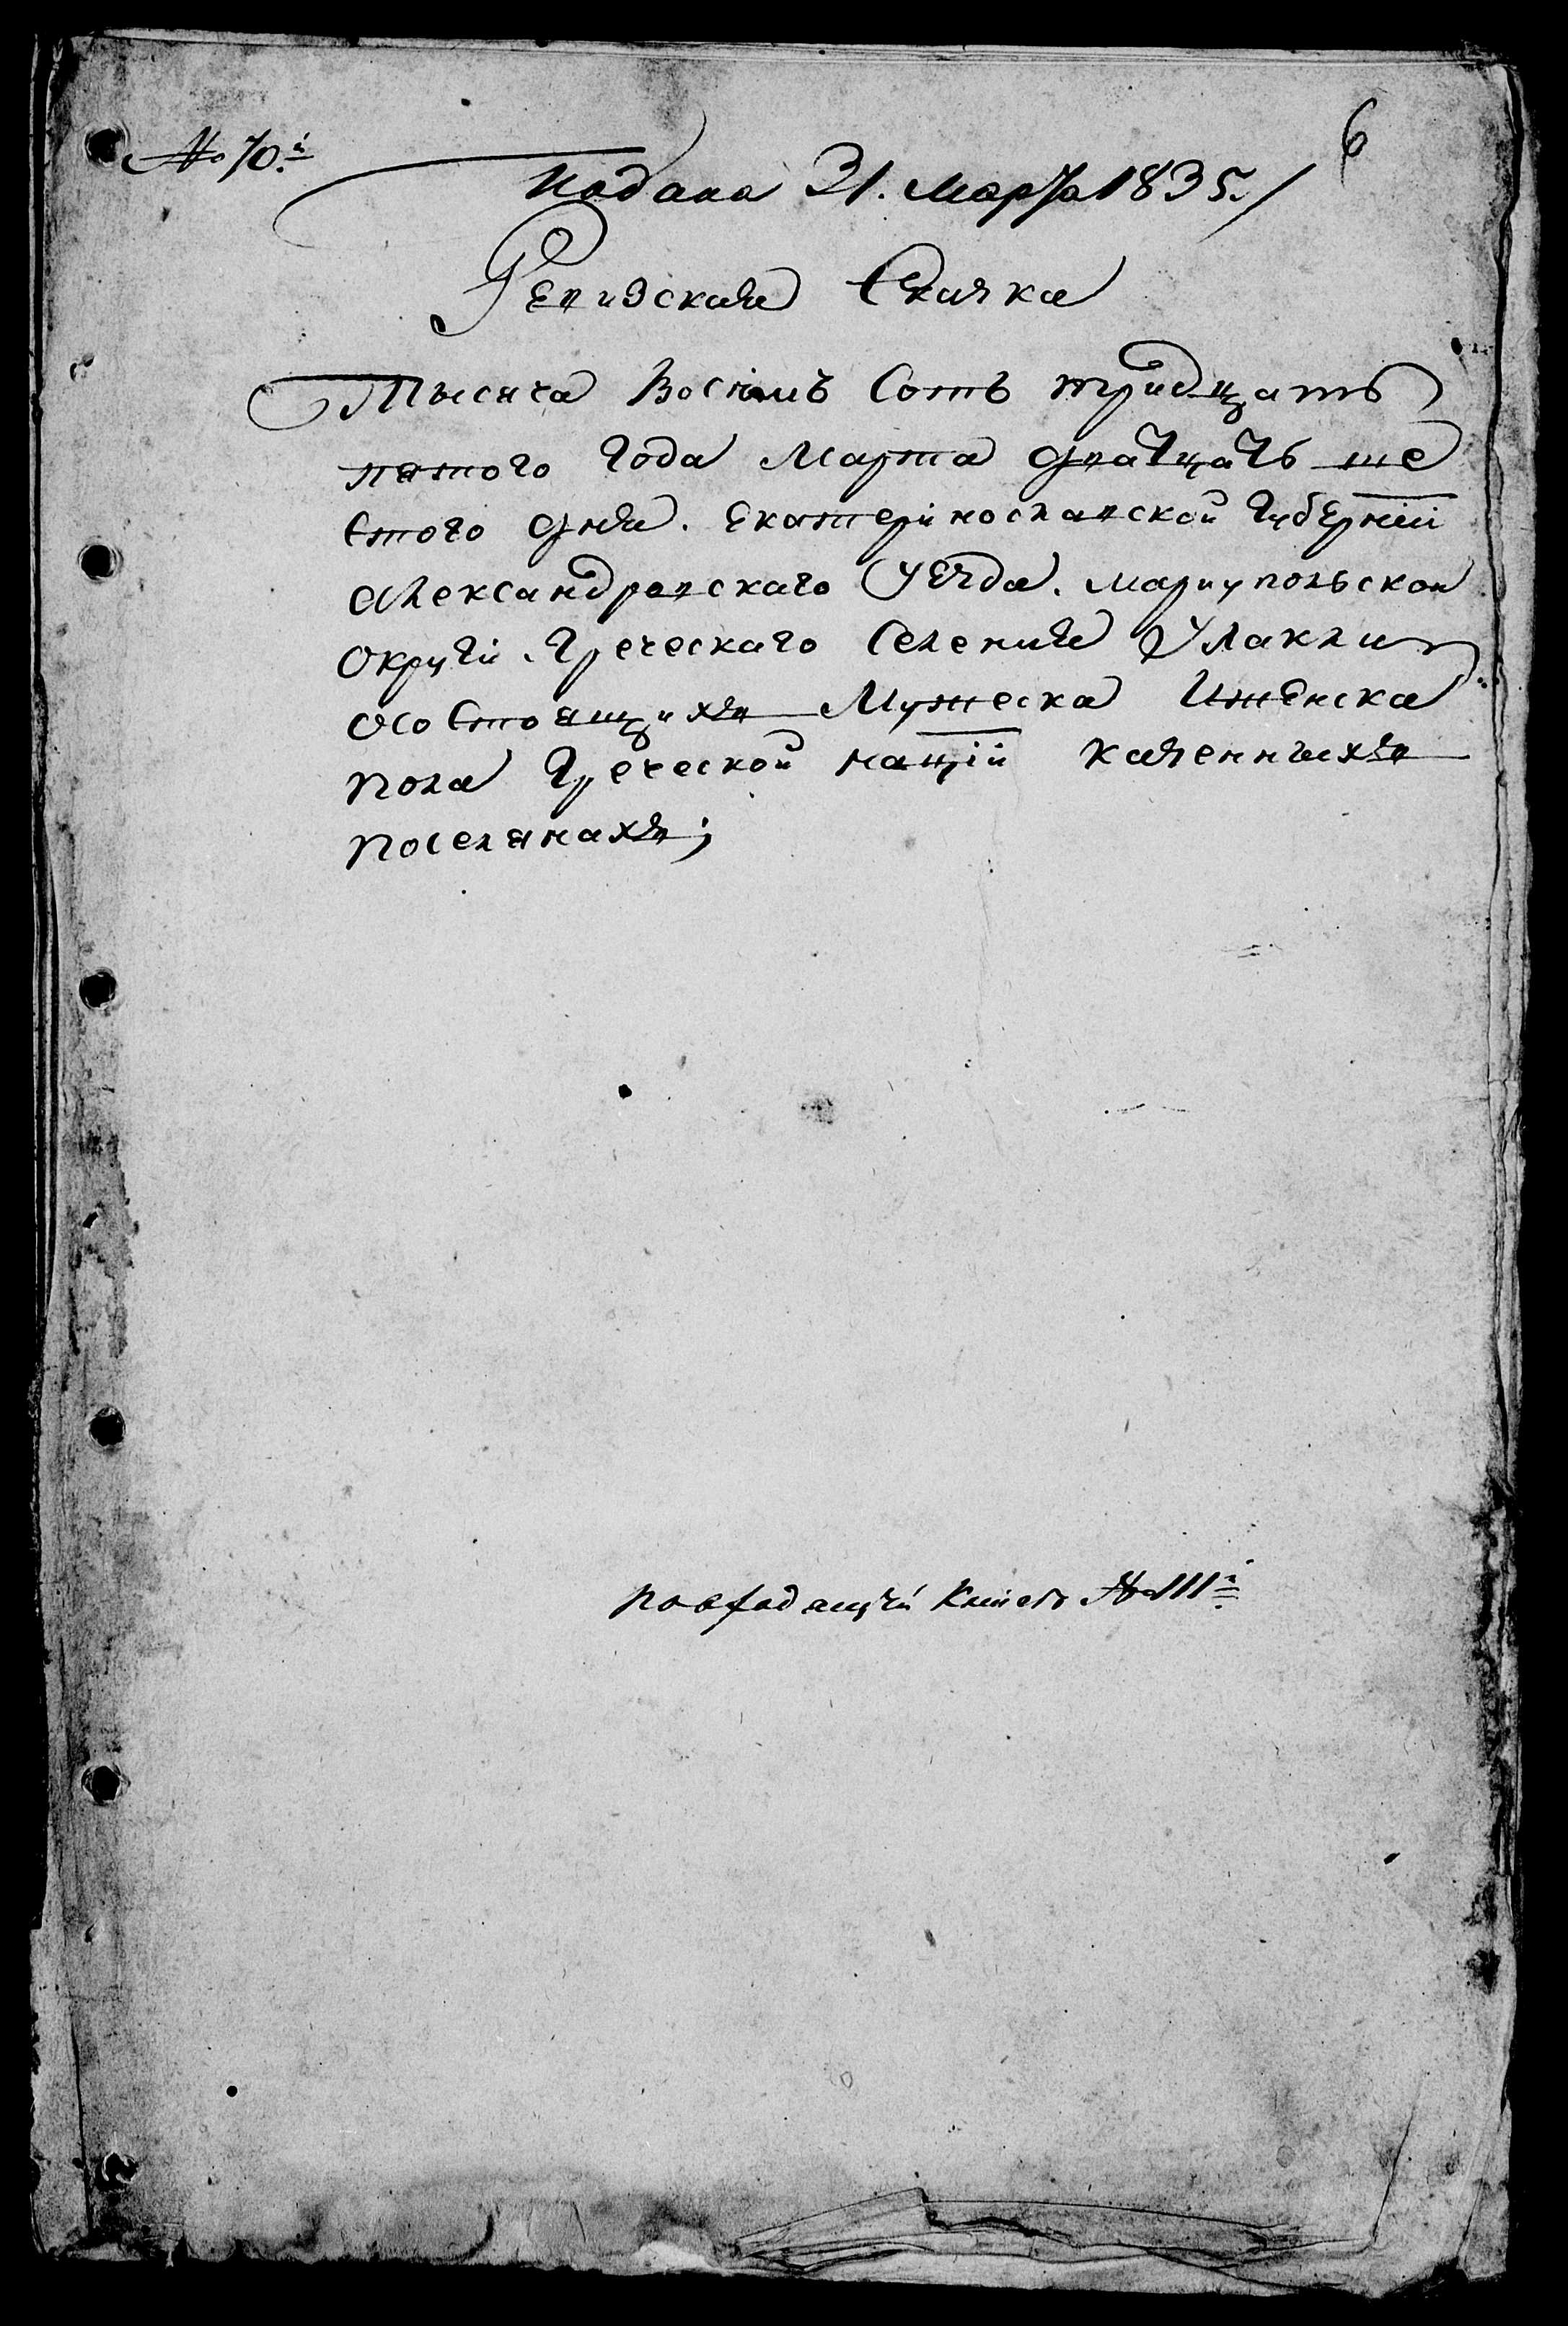 № 70.й
6
Подана 31. Марта 1835./
Ревизская Сказка
Тысяча Восемъ Сотъ тридцать
пятого года Марта дватцать ше
стого дня. Екатеринославской Губерніи
Александровскаго Уезда. Мариупольской
округи. Греческаго Селения Улаклы
осостоящихъ Мужеска Иженска
пола Греческой націи казенныхъ
поселянахъ;
повходящей Книге № 111й